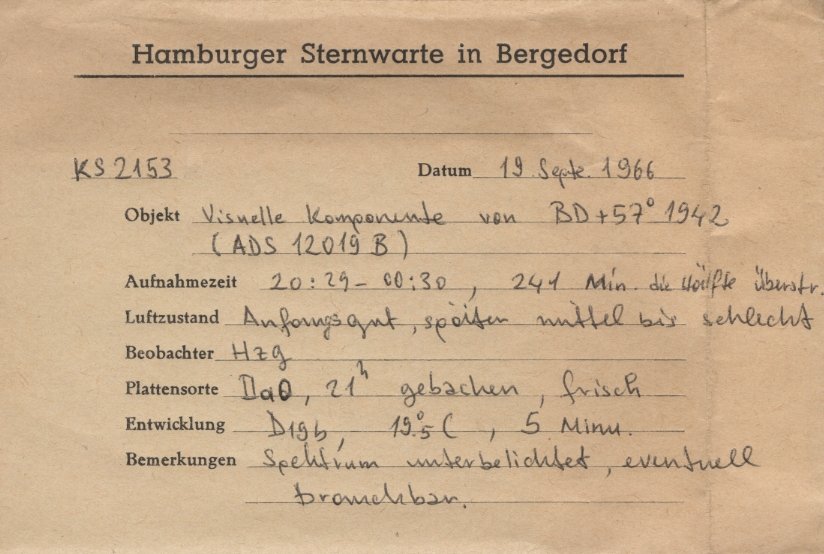 Hamburger Sternwarte in Bergedorf
KS 2153 Datum 19 Septe. 1966
Objekt Visuelle Komponente von BD+57° 1942
(ADS 12019 B)
Aufnahmezeit 20:29 - 00:30, 241 Min. die Hälfte überstr.
Luftzustand Anfangs gut, später mittel bis schlecht
Beobachter Hzg
Plattensorte IIaO, 21h gebacken, frisch
Entwicklung D19b, 19°.5 C, 5 Minu.
Bemerkungen Spektrum unterbelichtet, eventuell
brauchbar.